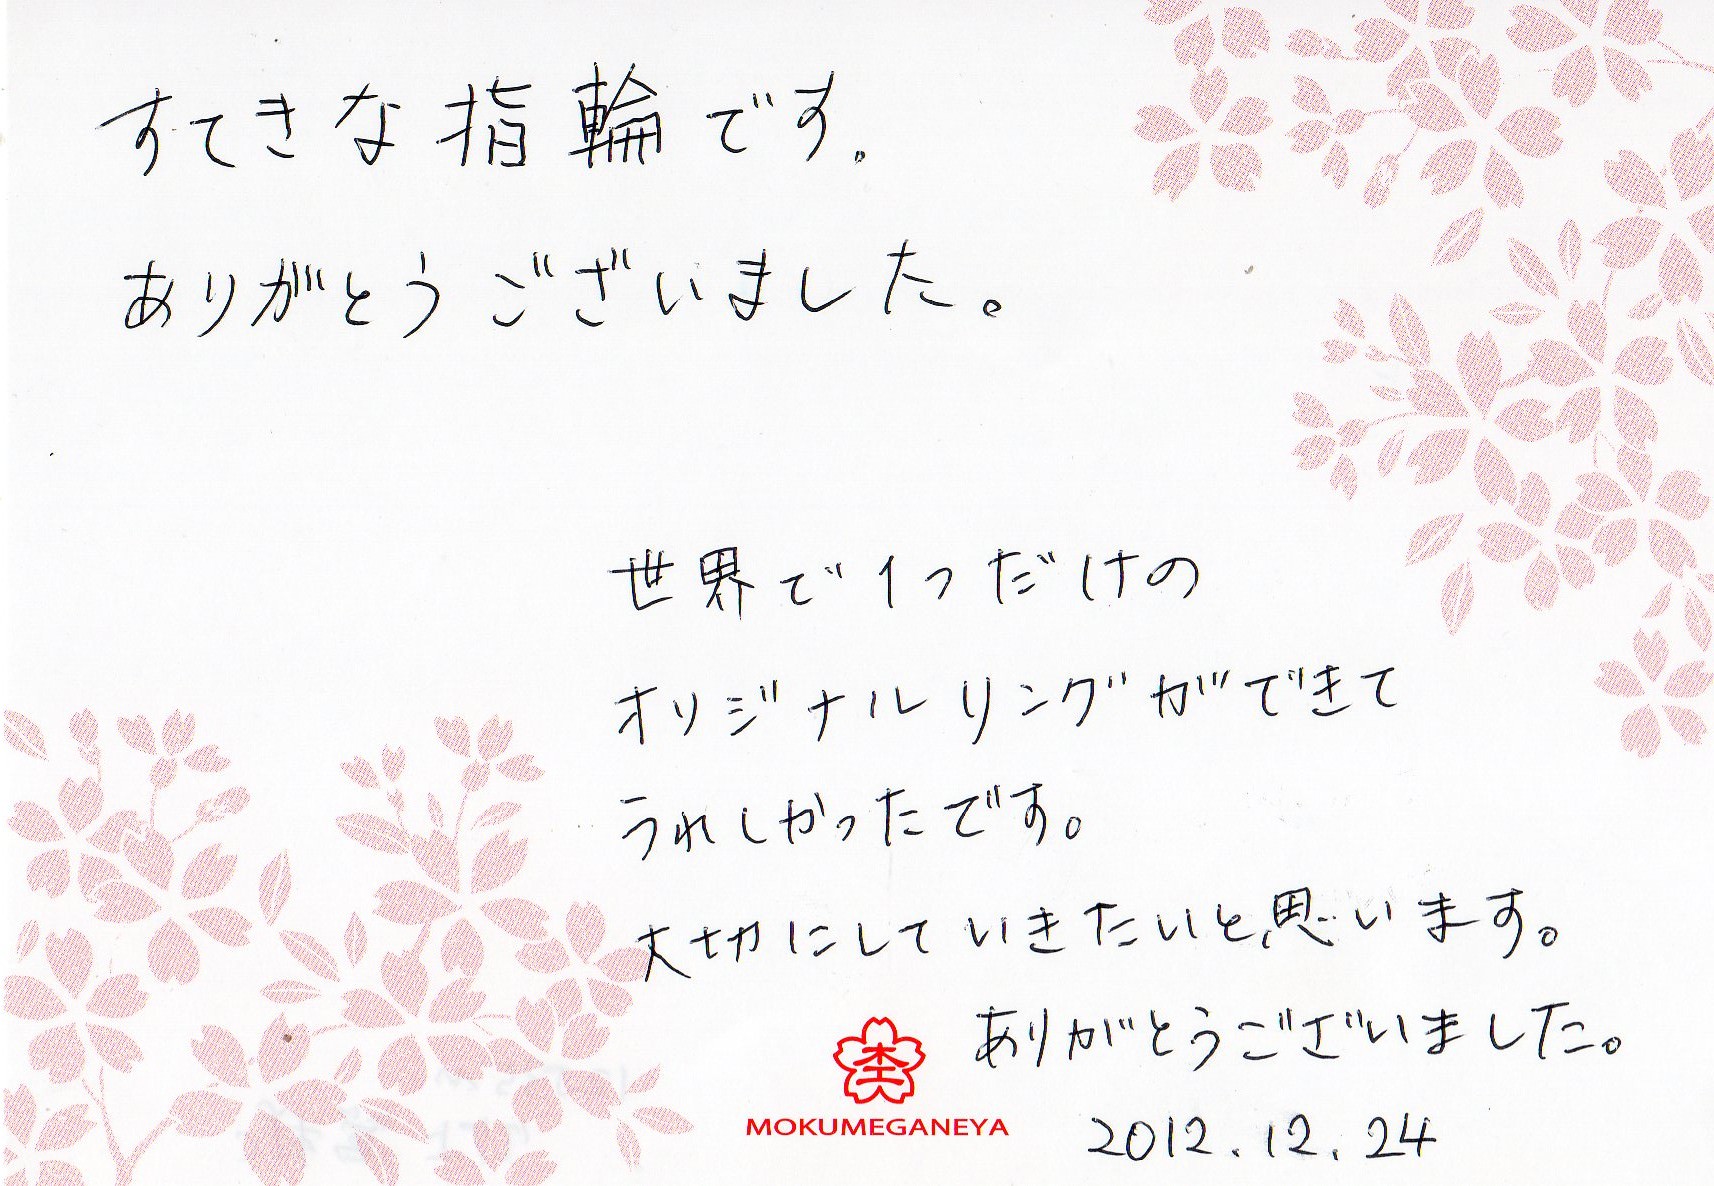 すてきな指輪です。
ありがとうございました。
世界で1つだけの
オリジナルリングができて
うれしかったです。
大切にしていきたいと思います。
ありがとうございました。
MOKUMEGANEYA
2012.12.24